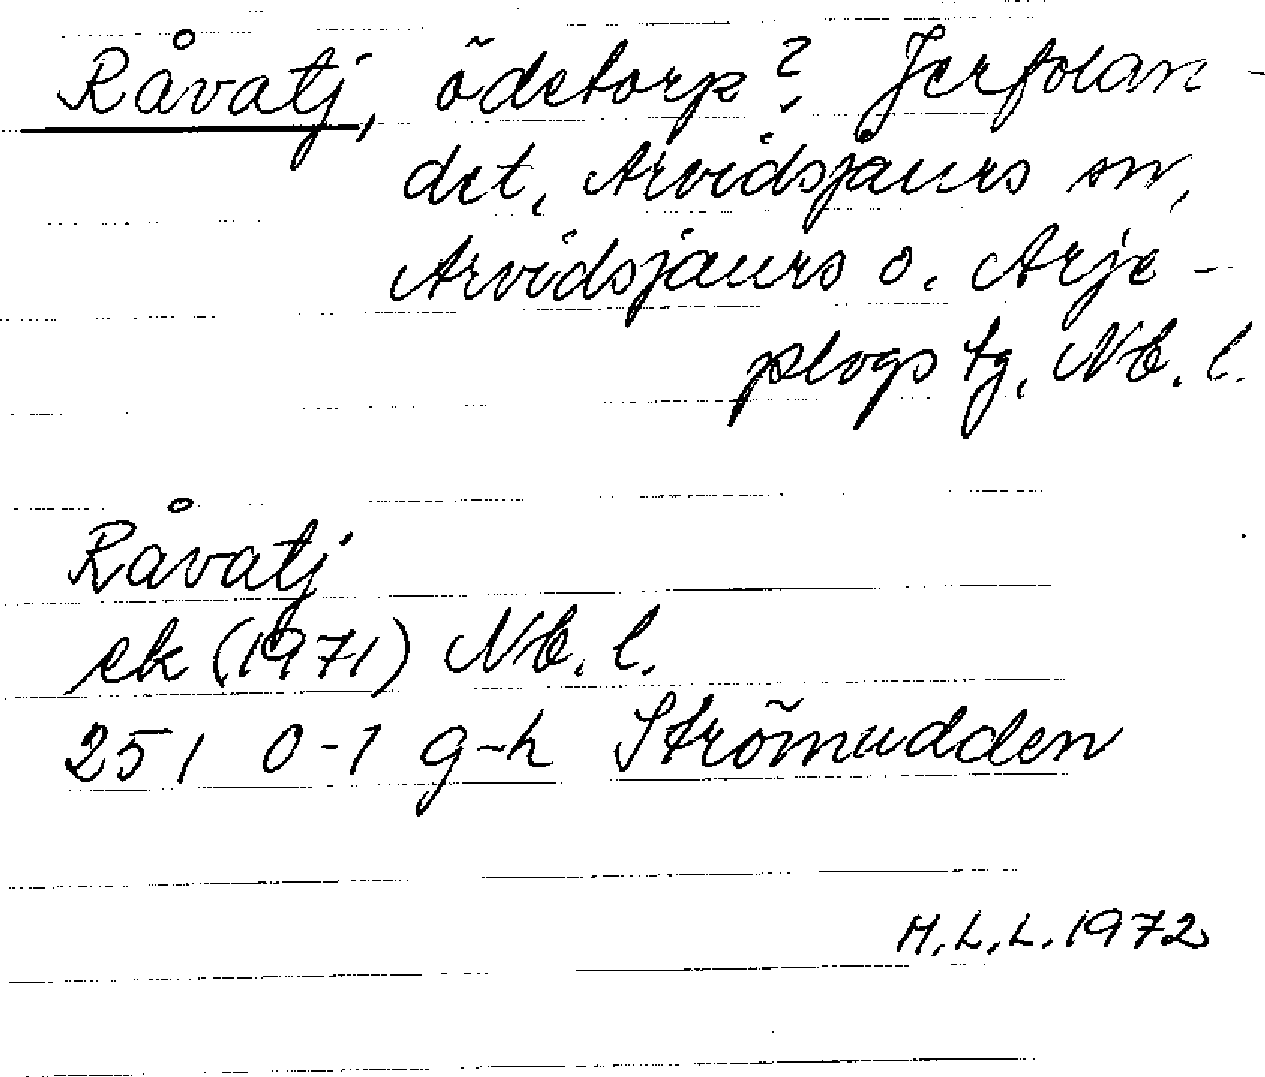 Råvatj, ödetorp? Jerfolan-
det, Arvidsjaurs sn,
Arvidsjaurs o. Arje-
plogs tg, Nb. l.
Råvatj
ek (1971) Nb. l.
251 0-1 g-h Strömudden
H.L.L. 1972